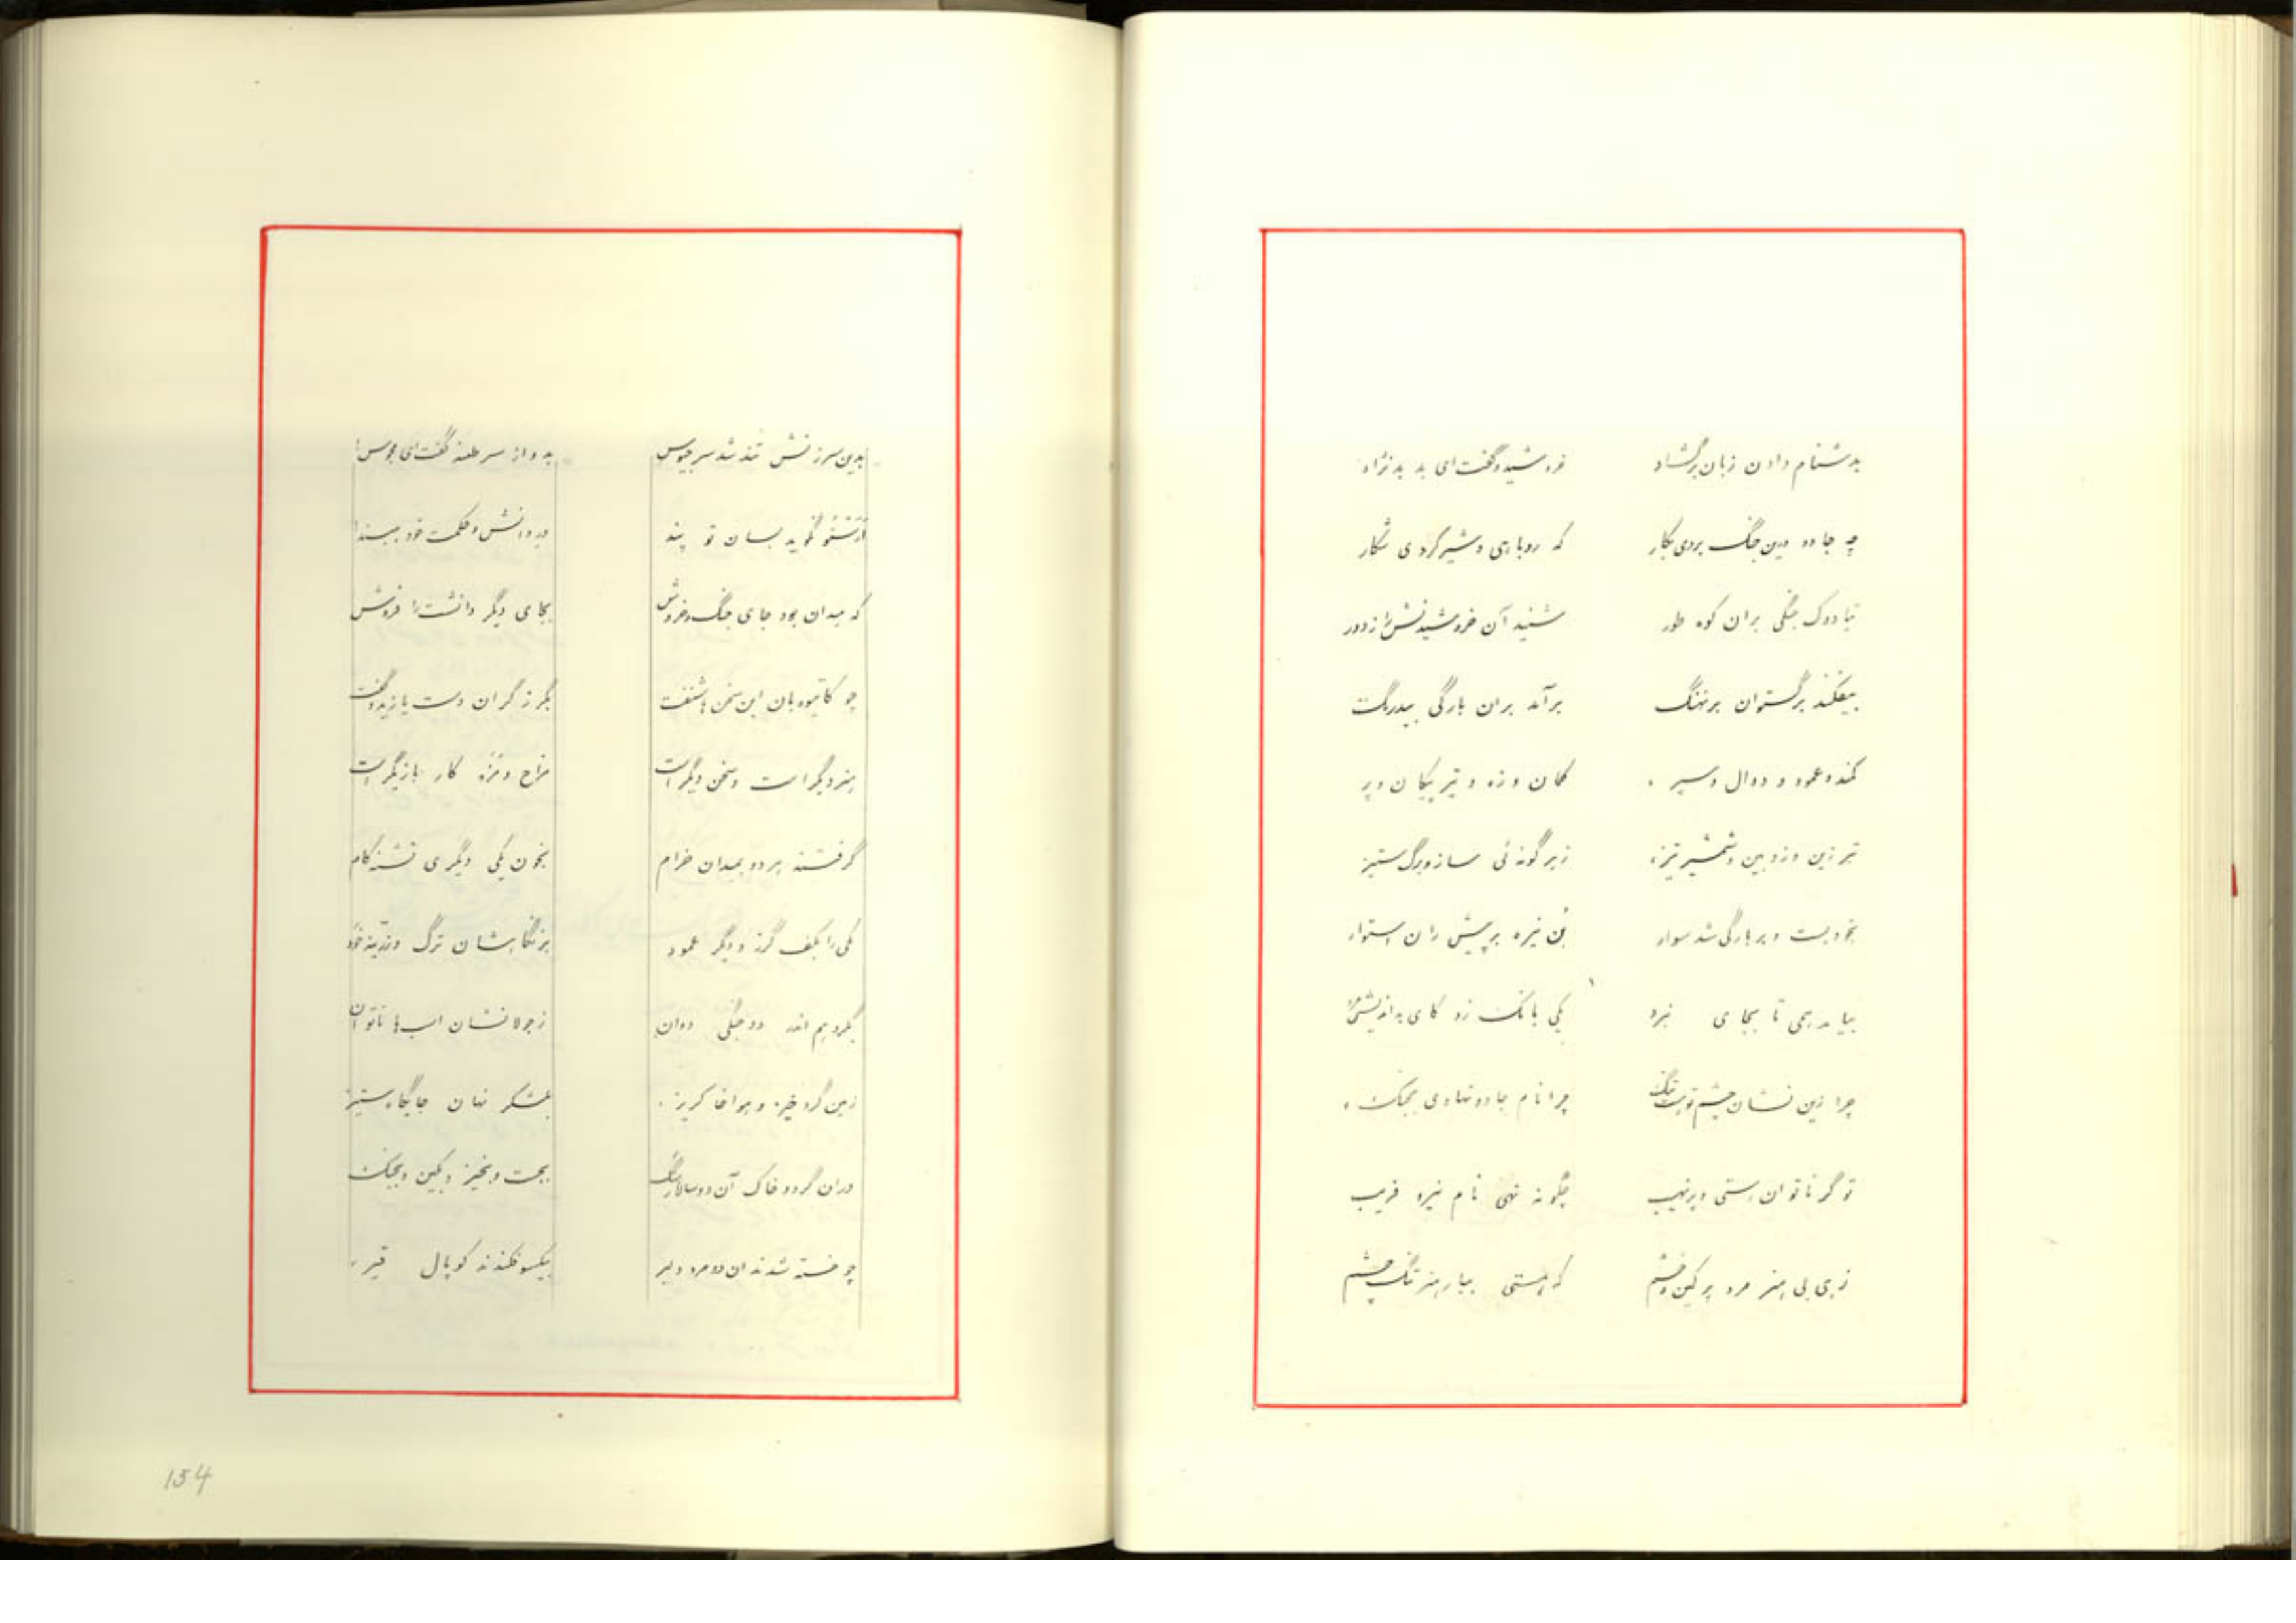 بدشنام دادن زبان برگشاد خروشید و گفت ای بد بدنژاد
چه جادو درین جنگ بردی بکار که روباهی و شیر کردی شکار
نیادوک جنگی بران کوه طور شنید آن خروشیدنش از دور
بیفکند برگستوان بر نهنگ برآمد بران بارگی بیدرنگ
کمند و عمود و دوال و سپر کمان و زه و تیر پیکان و پر
تبرزین و زوبین و شمشیر تیز ز هر گونه ئی ساز و برگ ستیز
بخود بست و بر بارگی شد سوار بُن نیزه بر پیش ران استوار
بیامد همی تا بجای نبرد یکی بانگ زد کای بداندیش مرد
چرا زین نشان چشم تو هست تنگ چرا نام جادو نهادی بجنگ
تو گر ناتوان هستی و پر نهیب چگونه نهی نام نیرو فریب
زهی بی هنر مرد پر کین و خشم که هستی بیار هنر تنگ چشم
بدین سرزنش تند شد سر جیوس بدو از سر طعنه گفت ای مجوس
ارستو نگوید بسان تو پند بدو دانش و حکمت خود مبند
که میدان بود جای جنگ و خروش بجای دیگر دانشت را فروش
چو کاتیوه بان این سخن ها شنفت بگرز گران دست یازید و گفت
هنر دیگر است و سخن دیگر است مزاح و مزه کار بازیگر است
گرفتند هر دو بمیدان خرام بخون یکی دیگری تشنه کام
یکی را بکف گرز و دیگر عمود بزنگاهشان ترگ و زرّینه خود
بگرد هم اندر دو جنگی دوان ز جولانشان اسب ها ناتوان
زمین گرد خیز و هوا خاک ریز ز لشکر نهان جایگاه ستیز
دران گرد و خاک آن دو سالار سنگ بجست و بخیز و بکین و بجنگ
چو خسته شدند ان دو مرد دلیر بیکسو فکندند کوپال
154